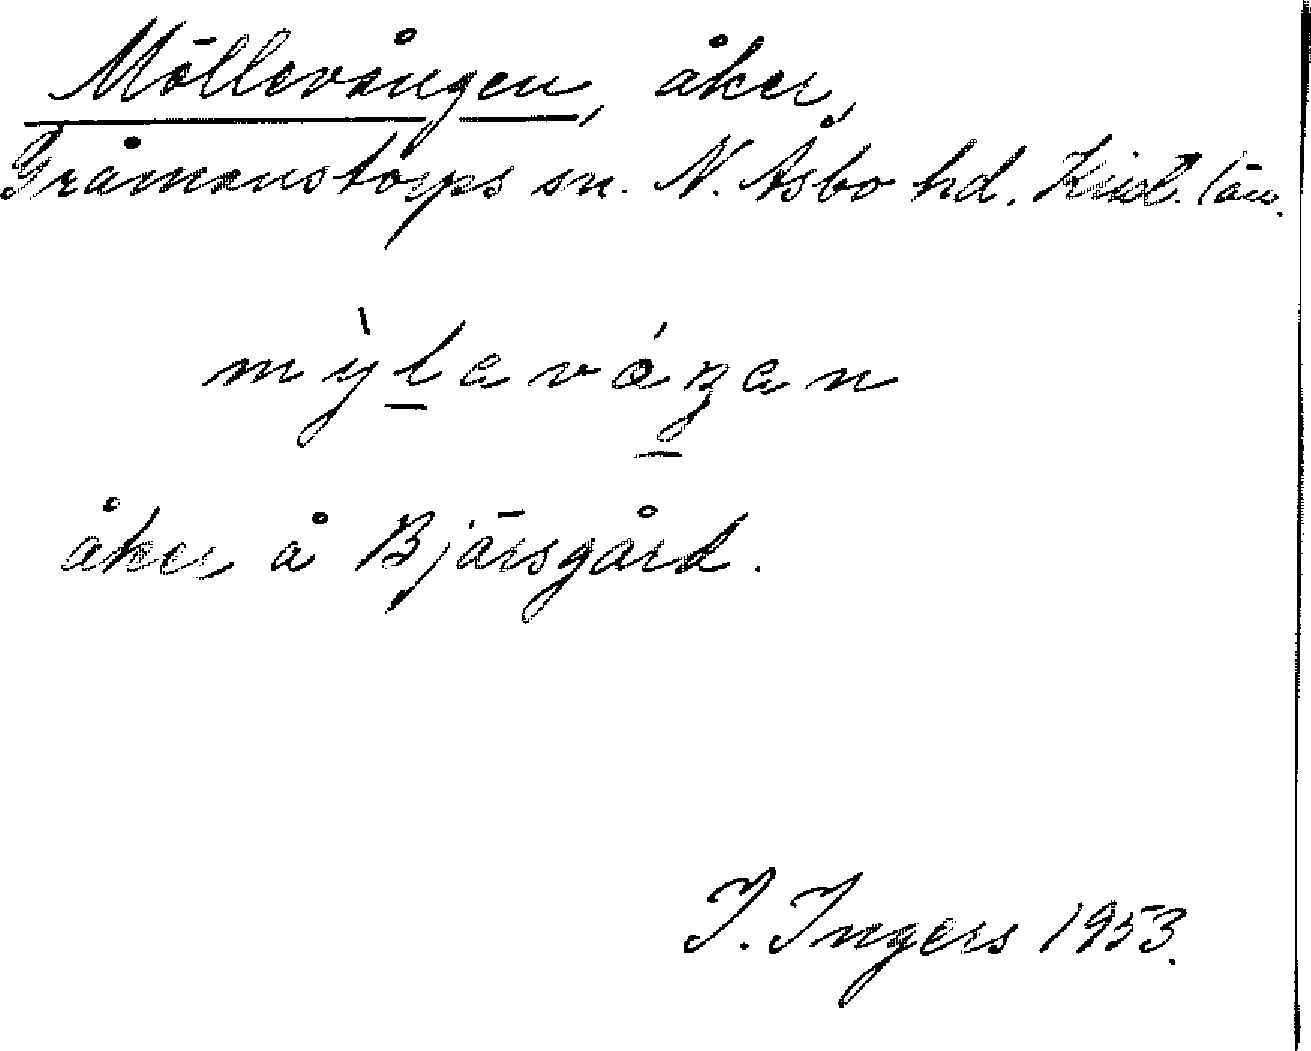 Möllevången, åker,
Gråmanstorps sn. N. Åsbo hd. Krist. län.
åker å Bjärsgård.
I. Ingers 1953.